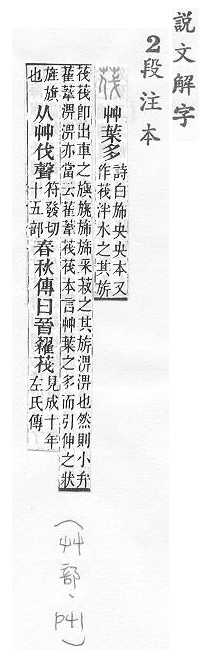 說文解字
2段注本
茷 艸葉多 詩白旆央央本又
作茷泮水之其旂
茷茷卽出車之旟旐旆旆采菽之其旂淠淠也然則小弁
萑葦淠淠亦當云萑葦茷茷本言艸葉之多而引伸之狀
旌旗
也 从艸伐聲 符發切
十五部 春秋傳曰晉糴茷 見成十年
左氏傳
(艸部、p41)